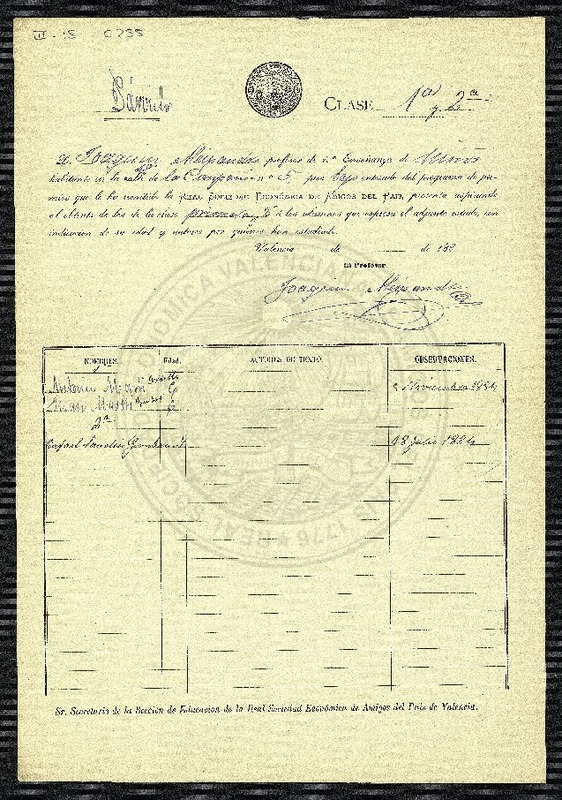 C 755
Párvulos
CLASE 1ª y 2ª
D. Joaquin profesor de 1ª Enseñanza de Niños
habitante en la calle de la nº 5 piso bajo enterado del programa de pre-
mios que le ha remitido la REAL SOCIEDAD ECONÓMICA DE AMIGOS DEL PAIS, presenta aspirando
al de los de la clase primera y 2ª á los alumnos que expresa el adjunto estado, con
indicacion de su edad y autores por quienes han estudiado.
Valencia de de 188
El Profesor,
Joaquin
NOMBRES. Edad. AUTORES DE TEXTO. OBSERVACIONES.
Antonio 6 Noviembre 1884
6
2ª
Rafael 18 Julio 1884
Sr. Secretario de la Sección de Educacion de la Real Sociedad Económica de Amigos del País de Valencia.
REAL SOCIEDAD ECONÓMICA VALENCIANA 1776